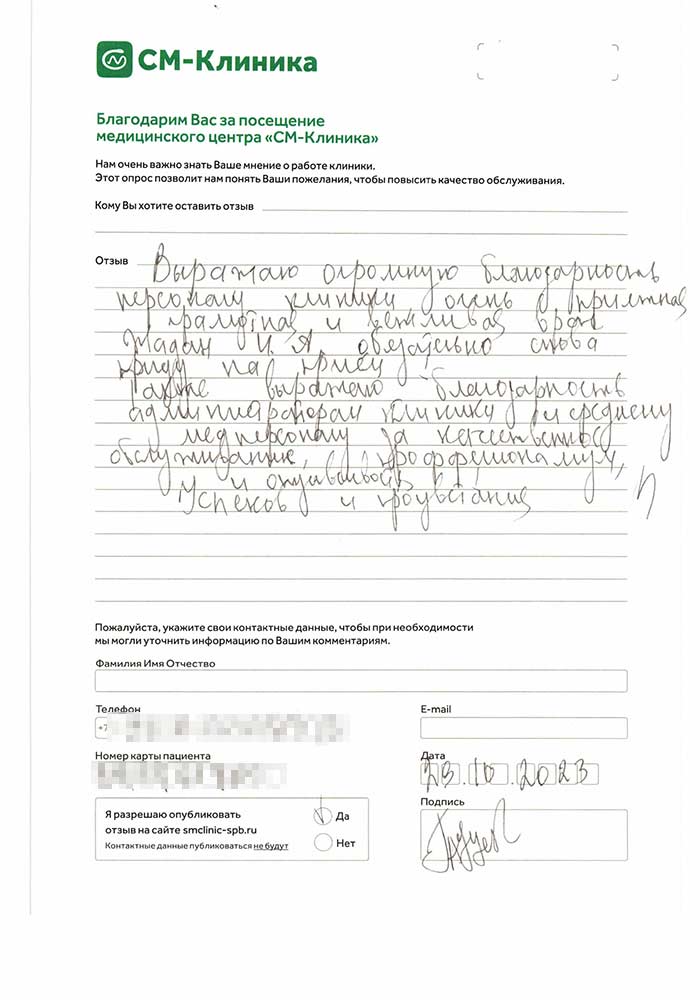 СМ-Клиника
Благодарим Вас за посещение
медицинского центра «СМ-Клиника»
Нам очень важно знать Ваше мнение о работе клиники.
Этот опрос позволит нам понять Ваши пожелания, чтобы повысить качество обслуживания.
Кому Вы хотите оставить отзыв
Отзыв Выражаю огромную благодарность
персоналу клиники, очень приятная
грамотная и вежливая врач
Жадан И. А. обязательно снова
приду на приём
Также выражаю благодарность
администраторам клиники и среднему
медперсоналу за качественное
обслуживание, профессионализм,
и отзывчивость
Успехов и процветания
Пожалуйста, укажите свои контактные данные, чтобы при необходимости
мы могли уточнить информацию по Вашим комментариям.
Фамилия Имя Отчество
Телефон E-mail
+7
Номер карты пациента Дата
23.10.2023
Подпись
Я разрешаю опубликовать
отзыв на сайте smclinic-spb.ru
Контактные данные публиковаться не будут
Да
Нет